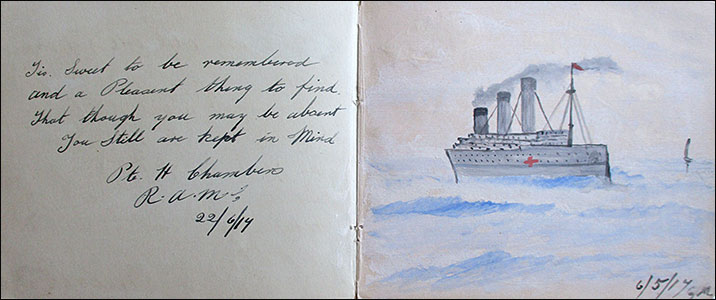 Tis. Sweet to be remembered
and a Pleasent thing to find.
That though you may be absent
You Still are kept in Mind
Pte. H Chambers
R.A.M.C.
22/6/17
6/5/17